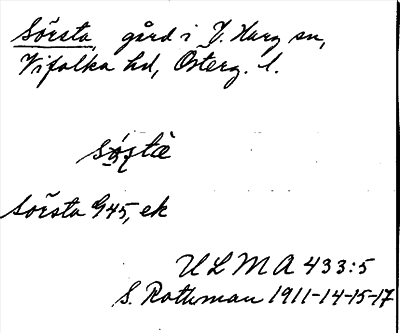 Sörsta, gård i V. Harg sn,
Vifolka hd, Österg. l.
Sörsta G45, ek
ULMA 433:5
S. Rothman 1911-14-15-17